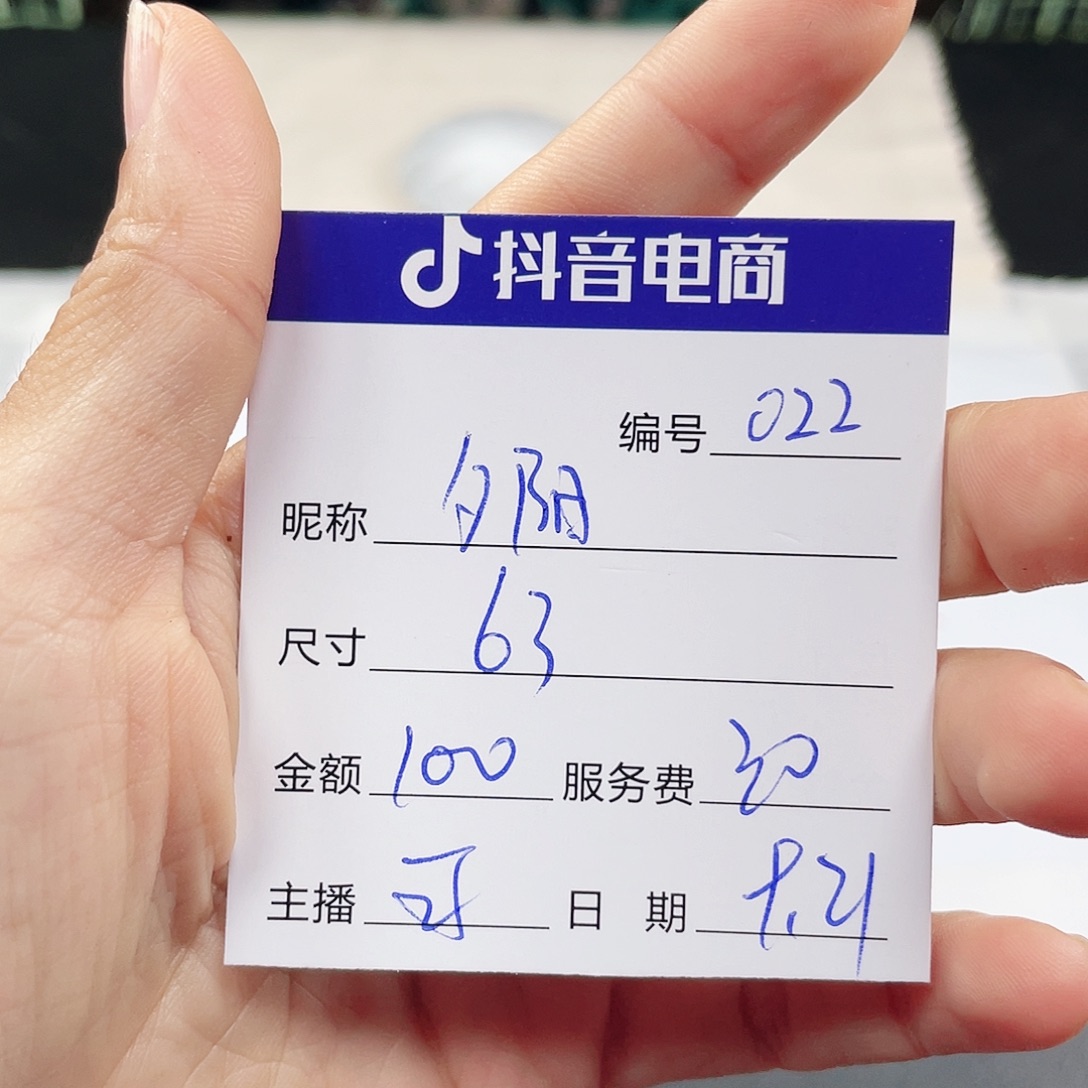 抖音电商
编号 022
昵称 夕阳
尺寸 63
金额 100 服务费 30
主播 日 期 8.21